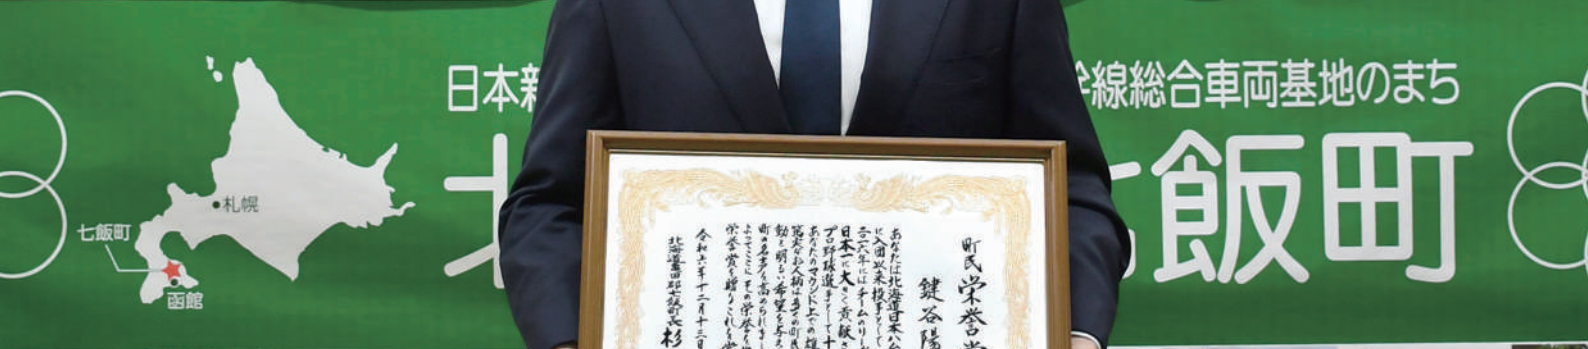 日本新
幹線総合車両基地のまち
北
七飯町
札幌
七飯町
函館
町民栄誉賞
鍵谷陽
あなたは北海道日本ハム
に入団以来投手として
二〇一六年にはチームのリー
日本一に大きく貢献さ
プロ野球選手として十
あなたのマウンド上での雄
篤実なお人柄は多くの町民
動と明るい希望を与え
町の名声を高められまし
よってここにその栄誉を
栄誉賞を贈りこれを賞
令和六年十二月十三日
北海道亀田郡七飯町長 杉